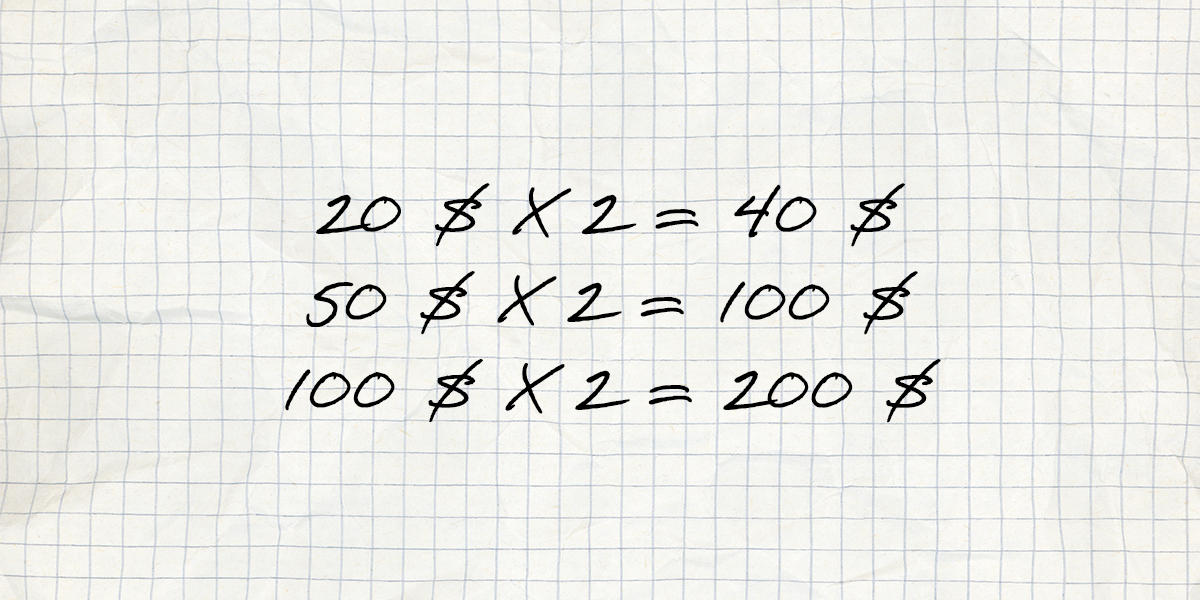 20 $ X 2 = 40 $
50 $ X 2 = 100 $
100 $ X 2 = 200 $